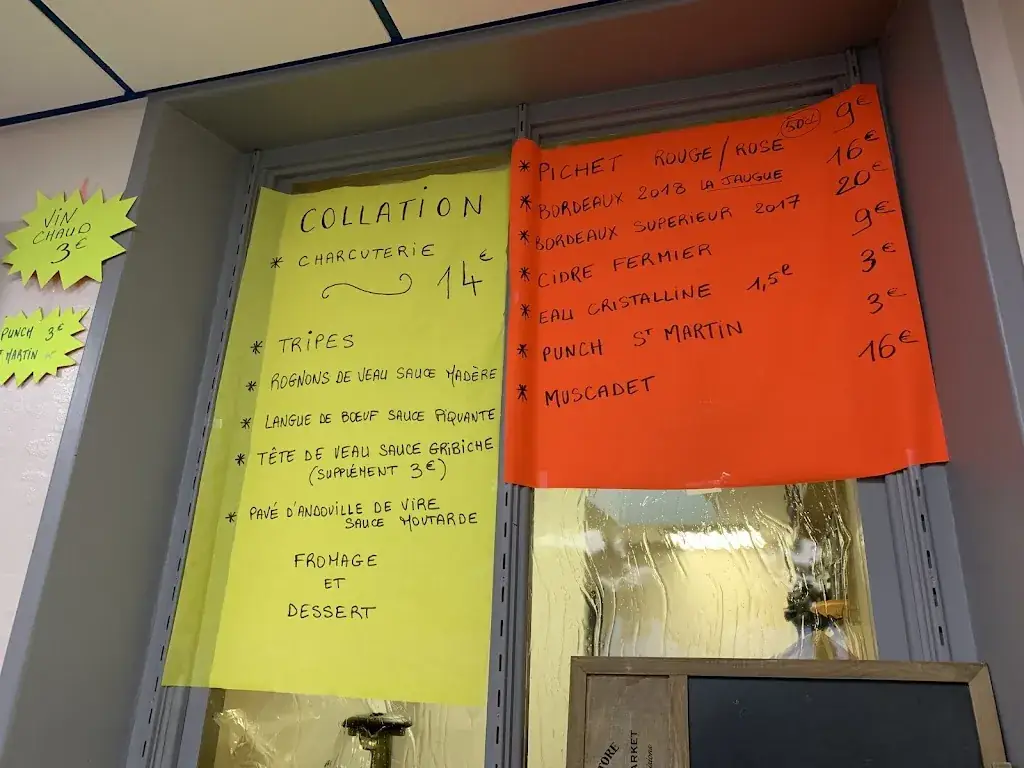 VIN
CHAUD
3€
PUNCH 3€
ST MARTIN
COLLATION
* CHARCUTERIE
14€
* TRIPES
* ROGNONS DE VEAU SAUCE MADÈRE
* LANGUE DE BŒUF SAUCE PIQUANTE
* TÊTE DE VEAU SAUCE GRIBICHE
(SUPPLÉMENT 3€)
* PAVÉ D'ANDOUILLE DE VIRE
SAUCE MOUTARDE
FROMAGE
ET
DESSERT
* PICHET ROUGE/ROSE 50CL 9€
* BORDEAUX 2018 LA JAUGUE 16€
* BORDEAUX SUPERIEUR 2017 20€
* CIDRE FERMIER 9€
* EAU CRISTALLINE 1,5€ 3€
* PUNCH ST MARTIN 3€
* MUSCADET 16€